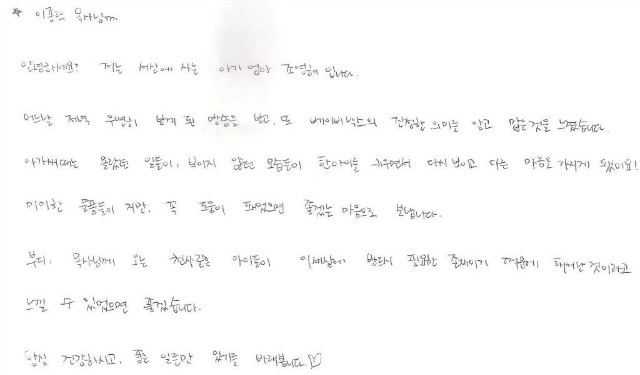 * 이종락 목사님께.
안녕하세요? 저는 서산에 사는 아기 엄마 조영해 입니다.
어느날 저녁 우연히 보게 된 방송을 보고, 또 베이비박스의 진정한 의미를 알고 많은것을 느꼈습니다.
아가씨때는 몰랐던 일들이, 보이지 않던 모습들이 한아이를 키우면서 다시보이고 다른 마음을 가지게 됐어요!
미미한 물품들이 지만, 꼭 도움이 되었으면 좋겠는 마음으로 보냅니다.
부디, 목사님께 오는 천사같은 아이들이 이세상에 반드시 필요한 존재이기 때문에 태어난 것이라고
느낄 수 있었으면 좋겠습니다.
항상 건강하시고, 좋은 일들만 있기를 바래봅니다.